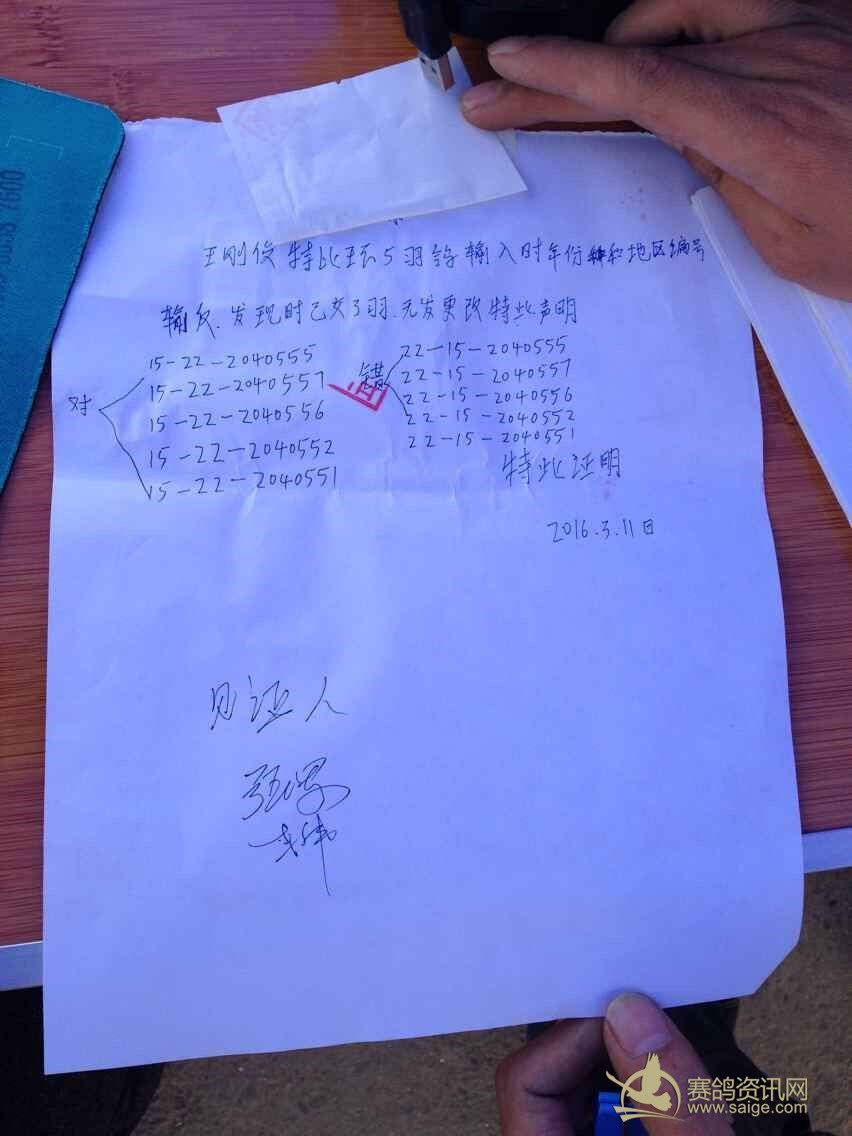 王刚俊特比环5羽鸽输入时年份和地区编号
输反.发现时已交了羽.无发更改特此声明
对
15-22-2040555
15-22-2040557
15-22-2040556
15-22-2040552
15-22-2040551
错
22-15-2040555
22-15-2040557
22-15-2040556
22-15-2040552
22-15-2040551
特此证明
2016.3.11日
见证人
赛鸽资讯网
www.saige.com